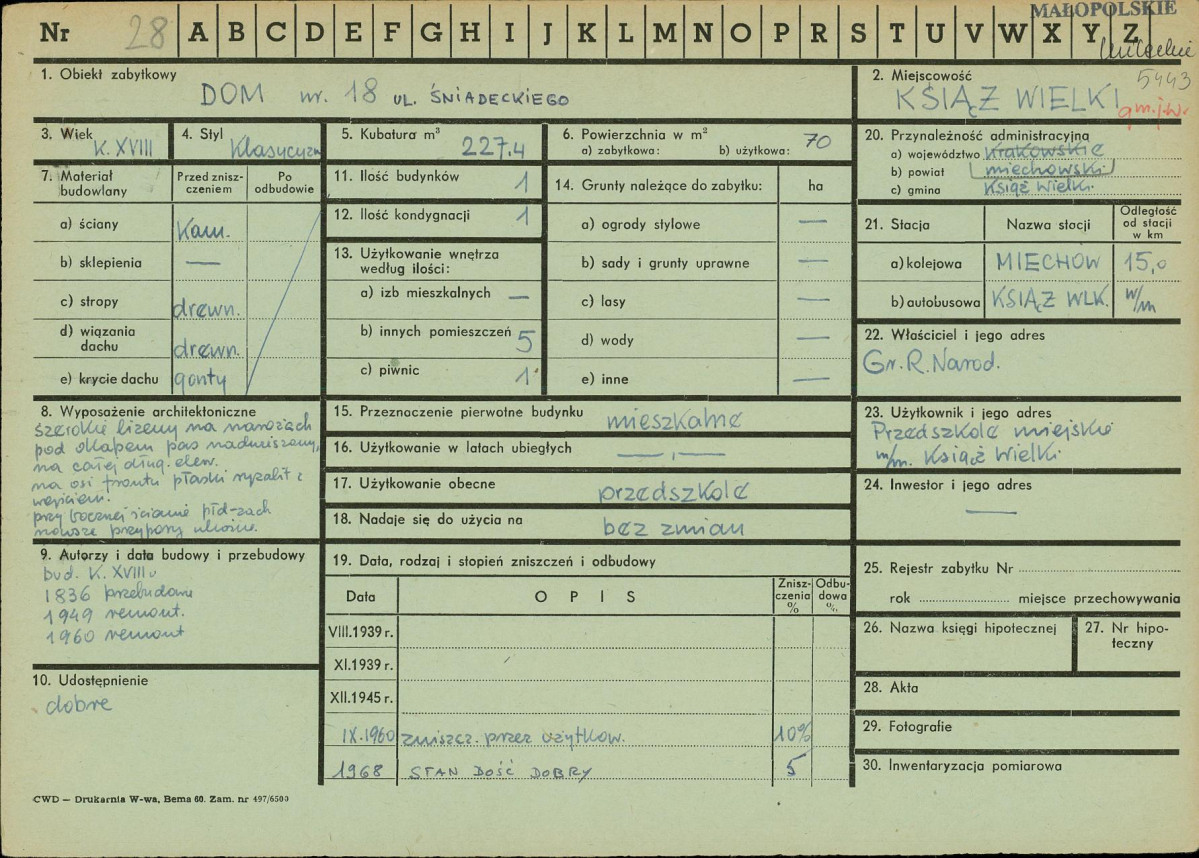 MAŁOPOLSKIE
Nr 28 A B C D E F G H I J K L M N O P R S T U V W X Y Z
1. Obiekt zabytkowy
DOM nr. 18 UL. ŚNIADECKIEGO
2. Miejscowość 5443
KSIĄŻ WIELKI
3. Wiek
K. XVIII
4. Styl
Klasycyzm
5. Kubatura m³
227.4
6. Powierzchnia w m²
a) zabytkowa: b) użytkowa: 70
20. Przynależność administracyjna
a) województwo Krakowskie
b) powiat miechowski
c) gmina Książ Wielki
7. Materiał budowlany
Przed zniszczeniem
Po odbudowie
a) ściany Kam.
b) sklepienia —
c) stropy drewn.
d) wiązania dachu drewn.
e) krycie dachu gonty
11. Ilość budynków 1
12. Ilość kondygnacji 1
13. Użytkowanie wnętrza
według ilości:
a) izb mieszkalnych —
b) innych pomieszczeń 5
c) piwnic 1
14. Grunty należące do zabytku: ha
a) ogrody stylowe —
b) sady i grunty uprawne —
c) lasy —
d) wody —
e) inne —
21. Stacja Nazwa stacji Odległość od stacji w km
a) kolejowa MIECHÓW 15,0
b) autobusowa KSIĄŻ WLK. w/m
22. Właściciel i jego adres
Gr. R. Narod.
8. Wyposażenie architektoniczne
szerokie lizeny na narożach
pod okapem pas nadwieszony,
na całej dług. elew.
na osi frontu płaski ryzalit z
wejściem.
przy bocznej ścianie płd-zach
nowsze przypory ukośne.
15. Przeznaczenie pierwotne budynku mieszkalne
16. Użytkowanie w latach ubiegłych —,—
17. Użytkowanie obecne przedszkole
18. Nadaje się do użycia na bez zmian
23. Użytkownik i jego adres
Przedszkole miejskie
w/m. Książ Wielki
24. Inwestor i jego adres
—
9. Autorzy i data budowy i przebudowy
bud. K. XVIII w
1836 przebudowa
1949 remont.
1960 remont
10. Udostępnienie
dobre
19. Data, rodzaj i stopień zniszczeń i odbudowy
Data OPIS Zniszczenia % Odbudowa %
VIII.1939 r.
XI.1939 r.
XII.1945 r.
IX.1960 zniszcz. przez użytkow. 10%
1968 STAN DOŚĆ DOBRY 5
25. Rejestr zabytku Nr
rok miejsce przechowywania
26. Nazwa księgi hipotecznej
27. Nr hipoteczny
28. Akta
29. Fotografie
30. Inwentaryzacja pomiarowa
CWD — Drukarnia W-wa, Bema 60. Zam. nr 497/6500